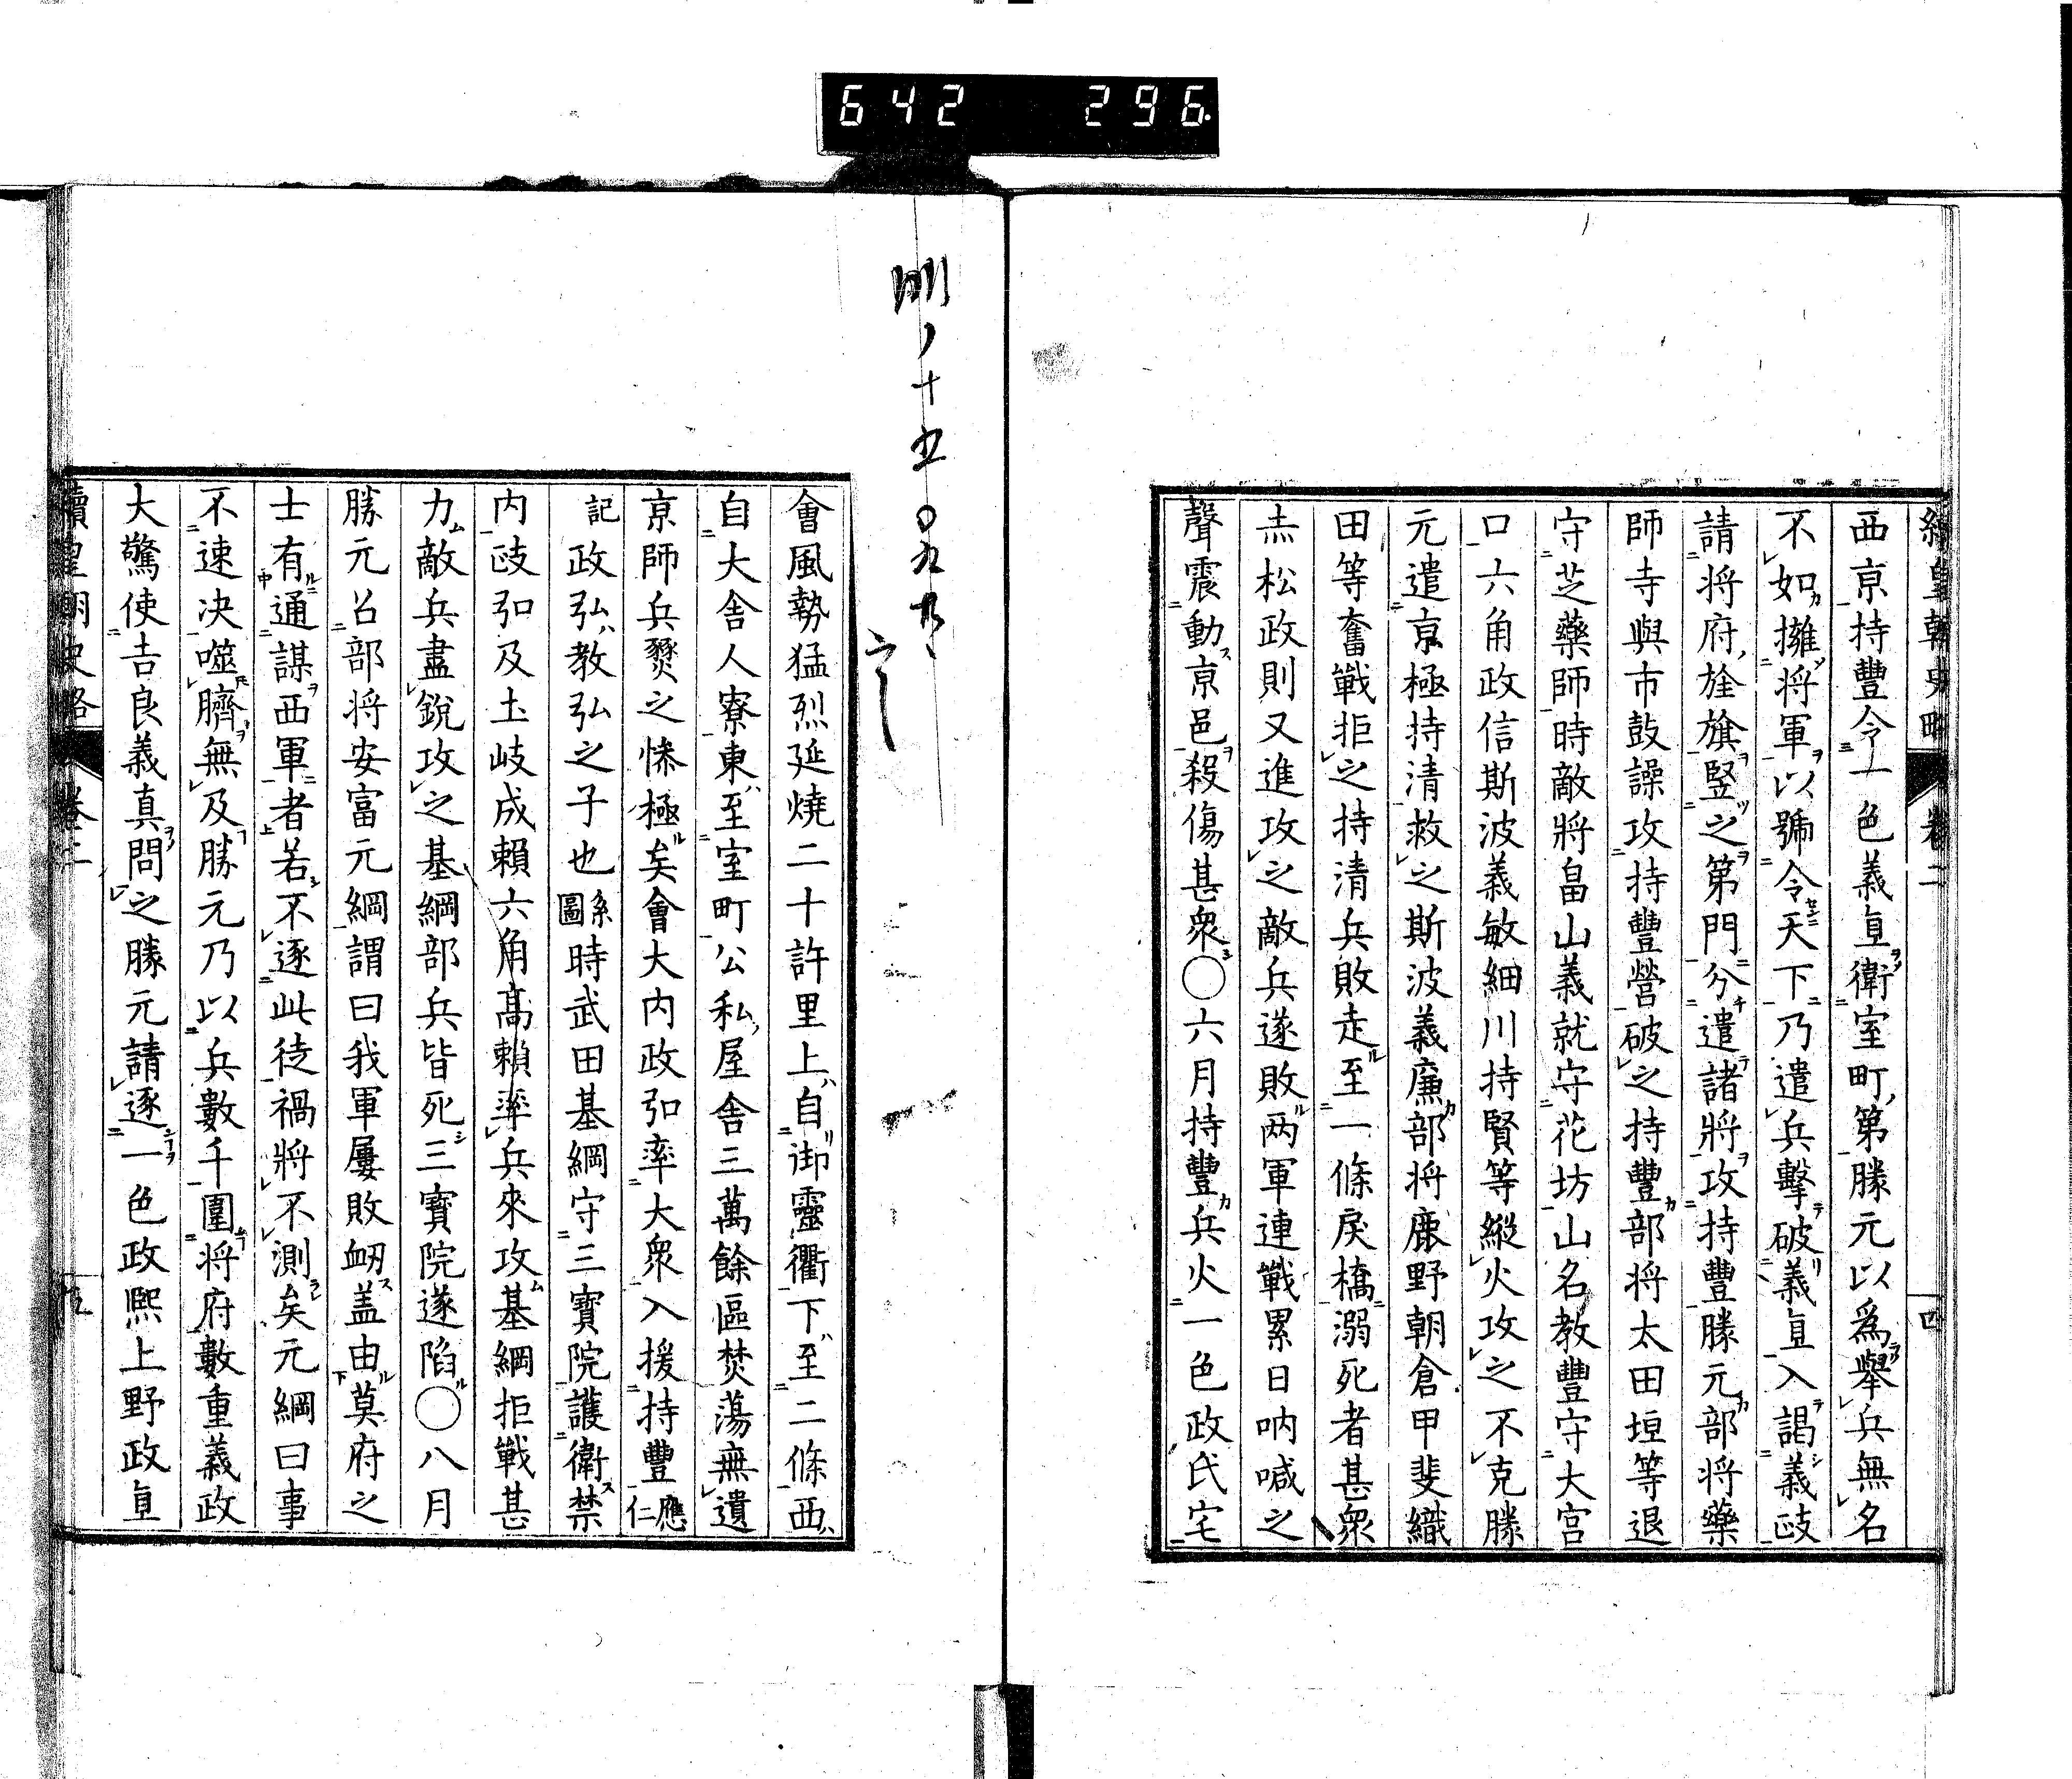 642 296.
續皇朝史略 卷二 四
西京持豐令一色義直衛室町第勝元以爲舉兵無名
不如擁将軍以號令天下乃遣兵擊破義直入謁義政
請将府旌旗竪之第門分遣諸將攻持豐勝元部将藥
師寺與市鼓譟攻持豐營破之持豐部将太田垣等退
守芝藥師時敵將畠山義就守花坊山名教豐守大宮
口六角政信斯波義敏細川持賢等縱火攻之不克勝
元遣京極持清救之斯波義廉部将鹿野朝倉甲斐織
田等奮戰拒之持清兵敗走至一條戻橋溺死者甚衆
赤松政則又進攻之敵兵遂敗两軍連戰累日吶喊之
聲震動京邑殺傷甚衆〇六月持豐兵火一色政氏宅
會風勢猛烈延燒二十許里上自御靈衢下至二條西
自大舍人寮東至室町公私屋舍三萬餘區焚蕩無遺
京師兵燹之慘極矣會大内政弘率大衆入援持豐應仁
記政弘教弘之子也系圖時武田基綱守三寶院護衛禁
内政弘及土岐成賴六角高賴率兵來攻基綱拒戰甚
力敵兵盡銳攻之基綱部兵皆死三寶院遂陷〇八月
勝元召部将安富元綱謂曰我軍屢敗衂盖由莫府之
士有通謀西軍者若不逐此徒禍將不測矣元綱曰事
不速决噬臍無及勝元乃以兵數千圍将府數重義政
大驚使吉良義真問之勝元請逐一色政熙上野政直
續皇朝史略 卷二 五